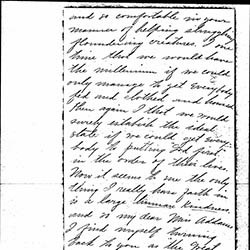 and so comfortable in your
manner of helping struggling
floundering creatures. I one
time that we would have
the millenium if we could
only manage to get everybody
fed and clothed and housed
then again I that we would
surely establish the ideal
state if we could get every-
body to putting God first
in the order of their love.
Now it seems to me the only
thing I really have faith in
is a large human kindness,
and so my dear Miss Addams
I find myself turning
back to you as the great